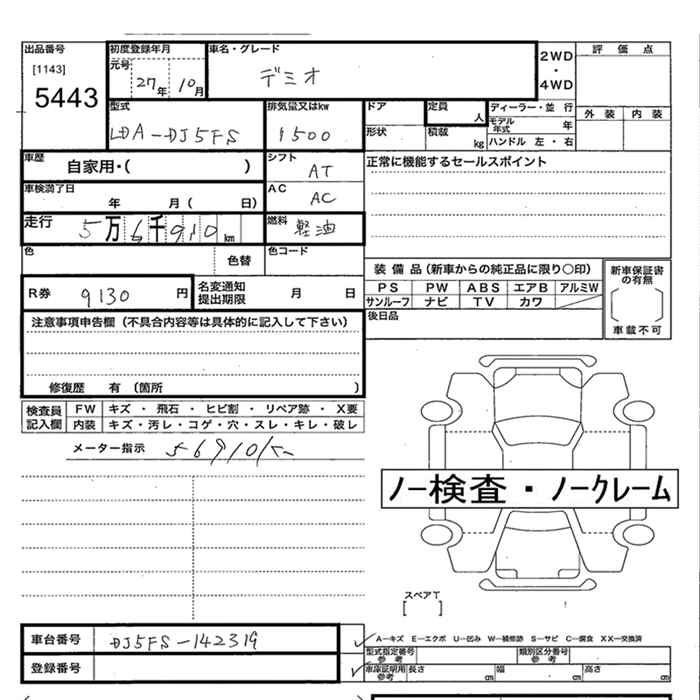 出品番号 初度登録年月 車名・グレード 2WD・4WD 評価点
[1143] 元号 27年 10月 デミオ
5443
型式 排気量又はkw ドア 定員 人 ディーラー・並行 外装 内装
LDA-DJ5FS 1500 形状 積載 kg モデル年式 年
ハンドル 左・右
車歴 自家用・( ) シフト AT 正常に機能するセールスポイント
車検満了日 年 月( 日) AC AC
走行 5万6千910km 燃料 軽油
色 色替 色コード
装備品(新車からの純正品に限り○印) 新車保証書の有無
R券 9130円 名変通知提出期限 月 日 PS PW ABS エアB アルミW
サンルーフ ナビ TV カワ 車載不可
注意事項申告欄(不具合内容等は具体的に記入して下さい) 後日品
修復歴 有(箇所 )
検査員記入欄 FW キズ・飛石・ヒビ割・リペア跡・X要
内装 キズ・汚レ・コゲ・穴・スレ・キレ・破レ
メーター指示 56910K
ノー検査・ノークレーム
スペアT
[ ]
車台番号 DJ5FS-142319 A-キズ E-エクボ U-凹み W-補修跡 S-サビ C-腐食 XX-交換済
型式指定番号 参考 類別区分番号 参考
登録番号 車庫証明用 参考 長さ cm 幅 cm 高さ cm